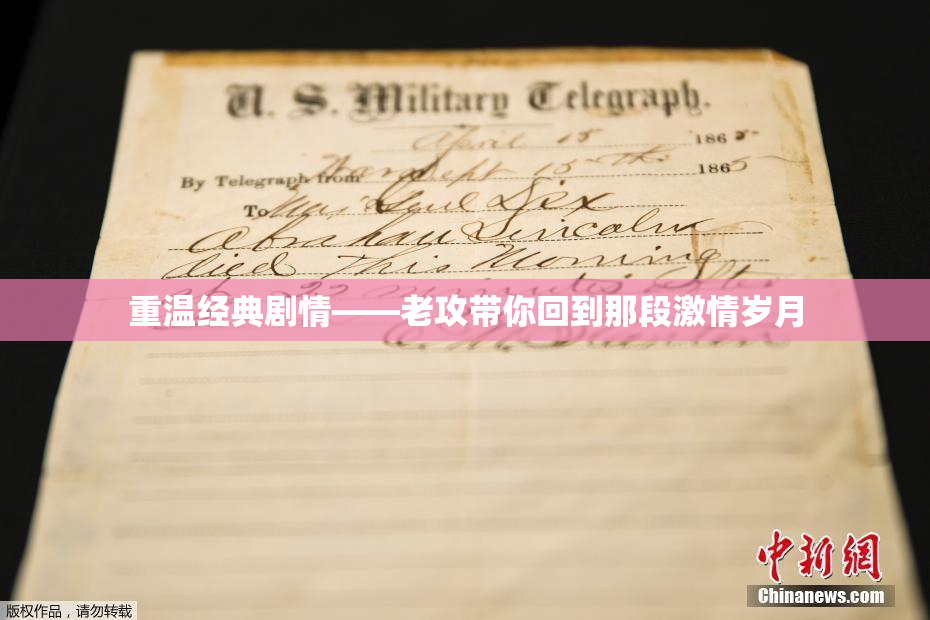 U. S. Military Telegraph.
April 15 1865
By Telegraph from War Dept 15th 1865
To Maj Genl Dix
Abraham Lincoln
died This Morning
at 22 minutes after
重温经典剧情——老攻带你回到那段激情岁月
E. M. Stanton
中新网
Chinanews.com
版权作品，请勿转载